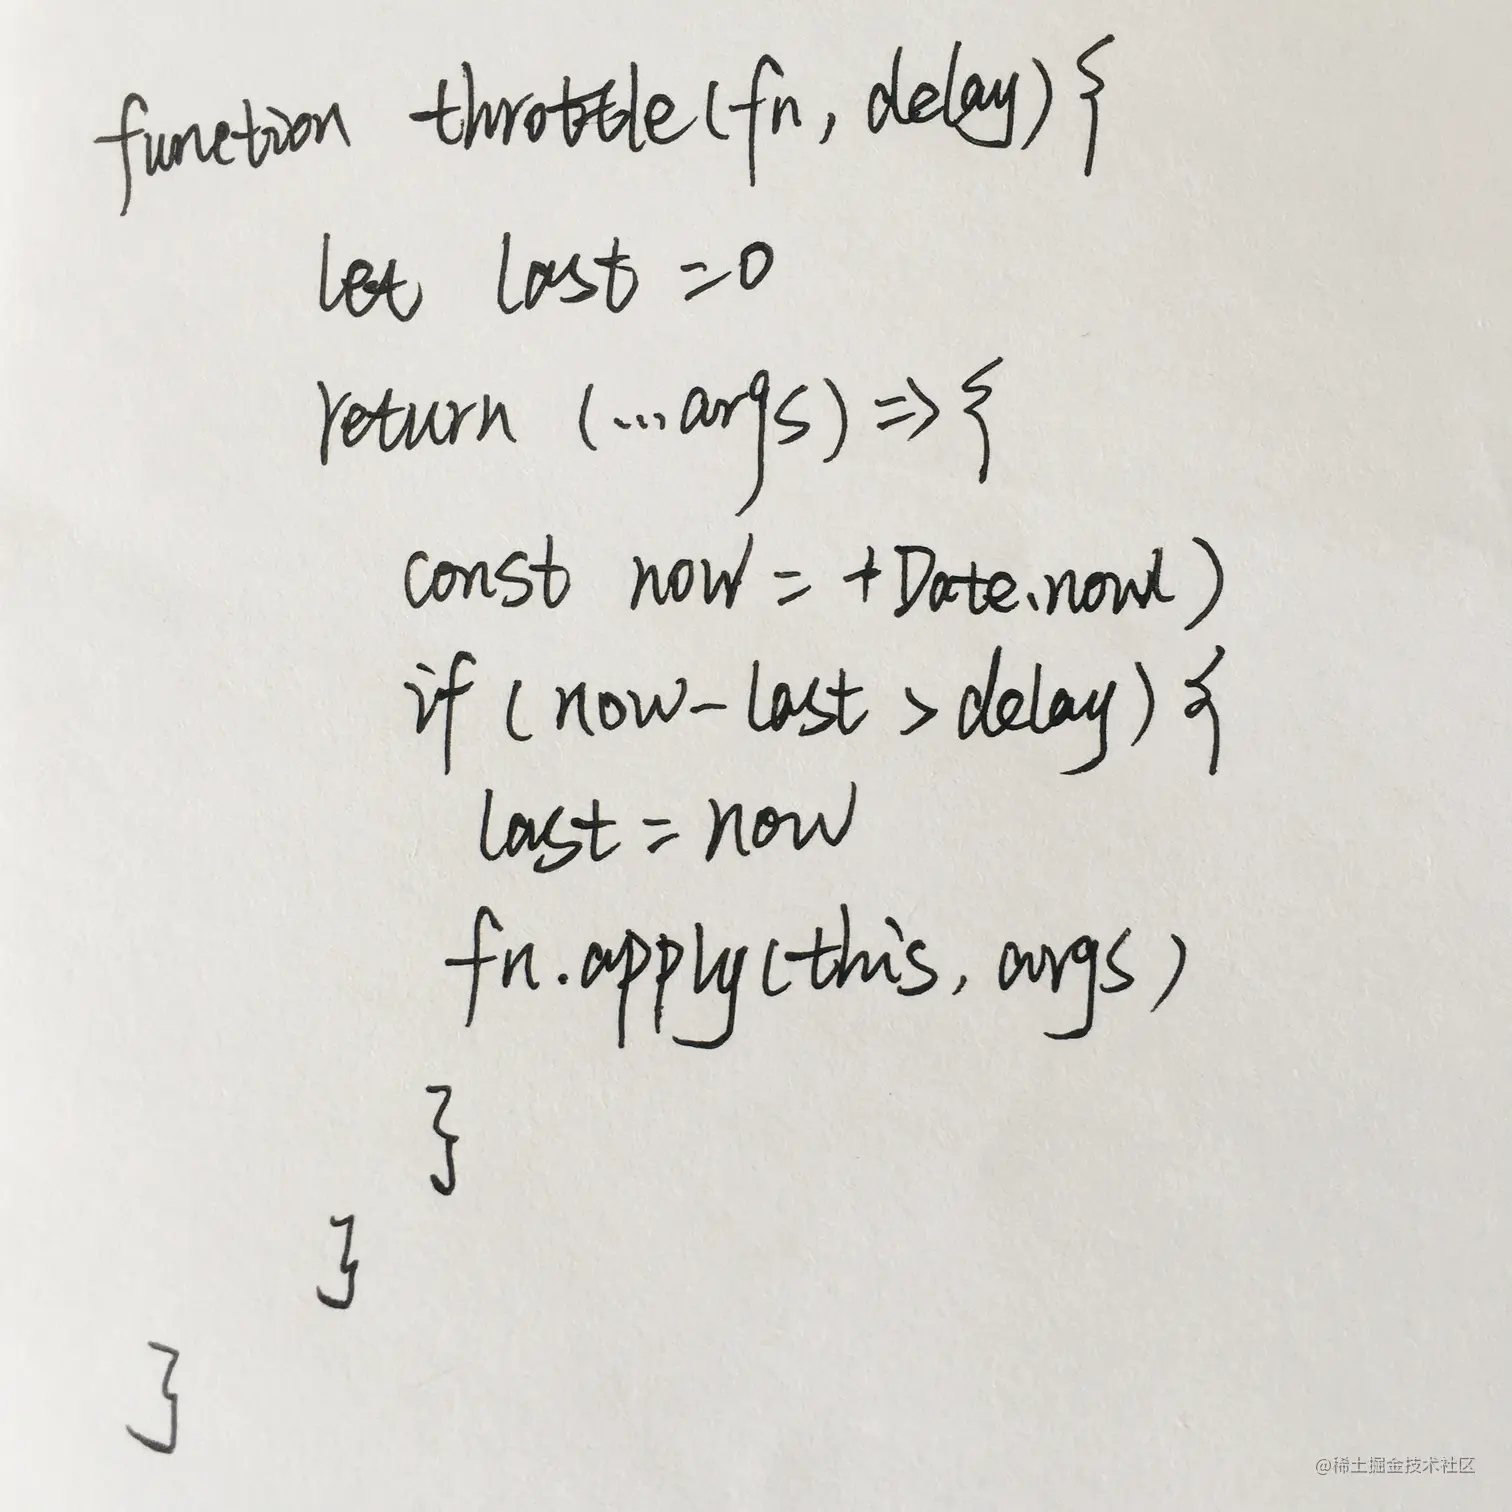 function throttle(fn, delay) {
let last = 0
return (...args) => {
const now = +Date.now()
if (now - last > delay) {
last = now
fn.apply(this, args)
}
}
}
@稀土掘金技术社区